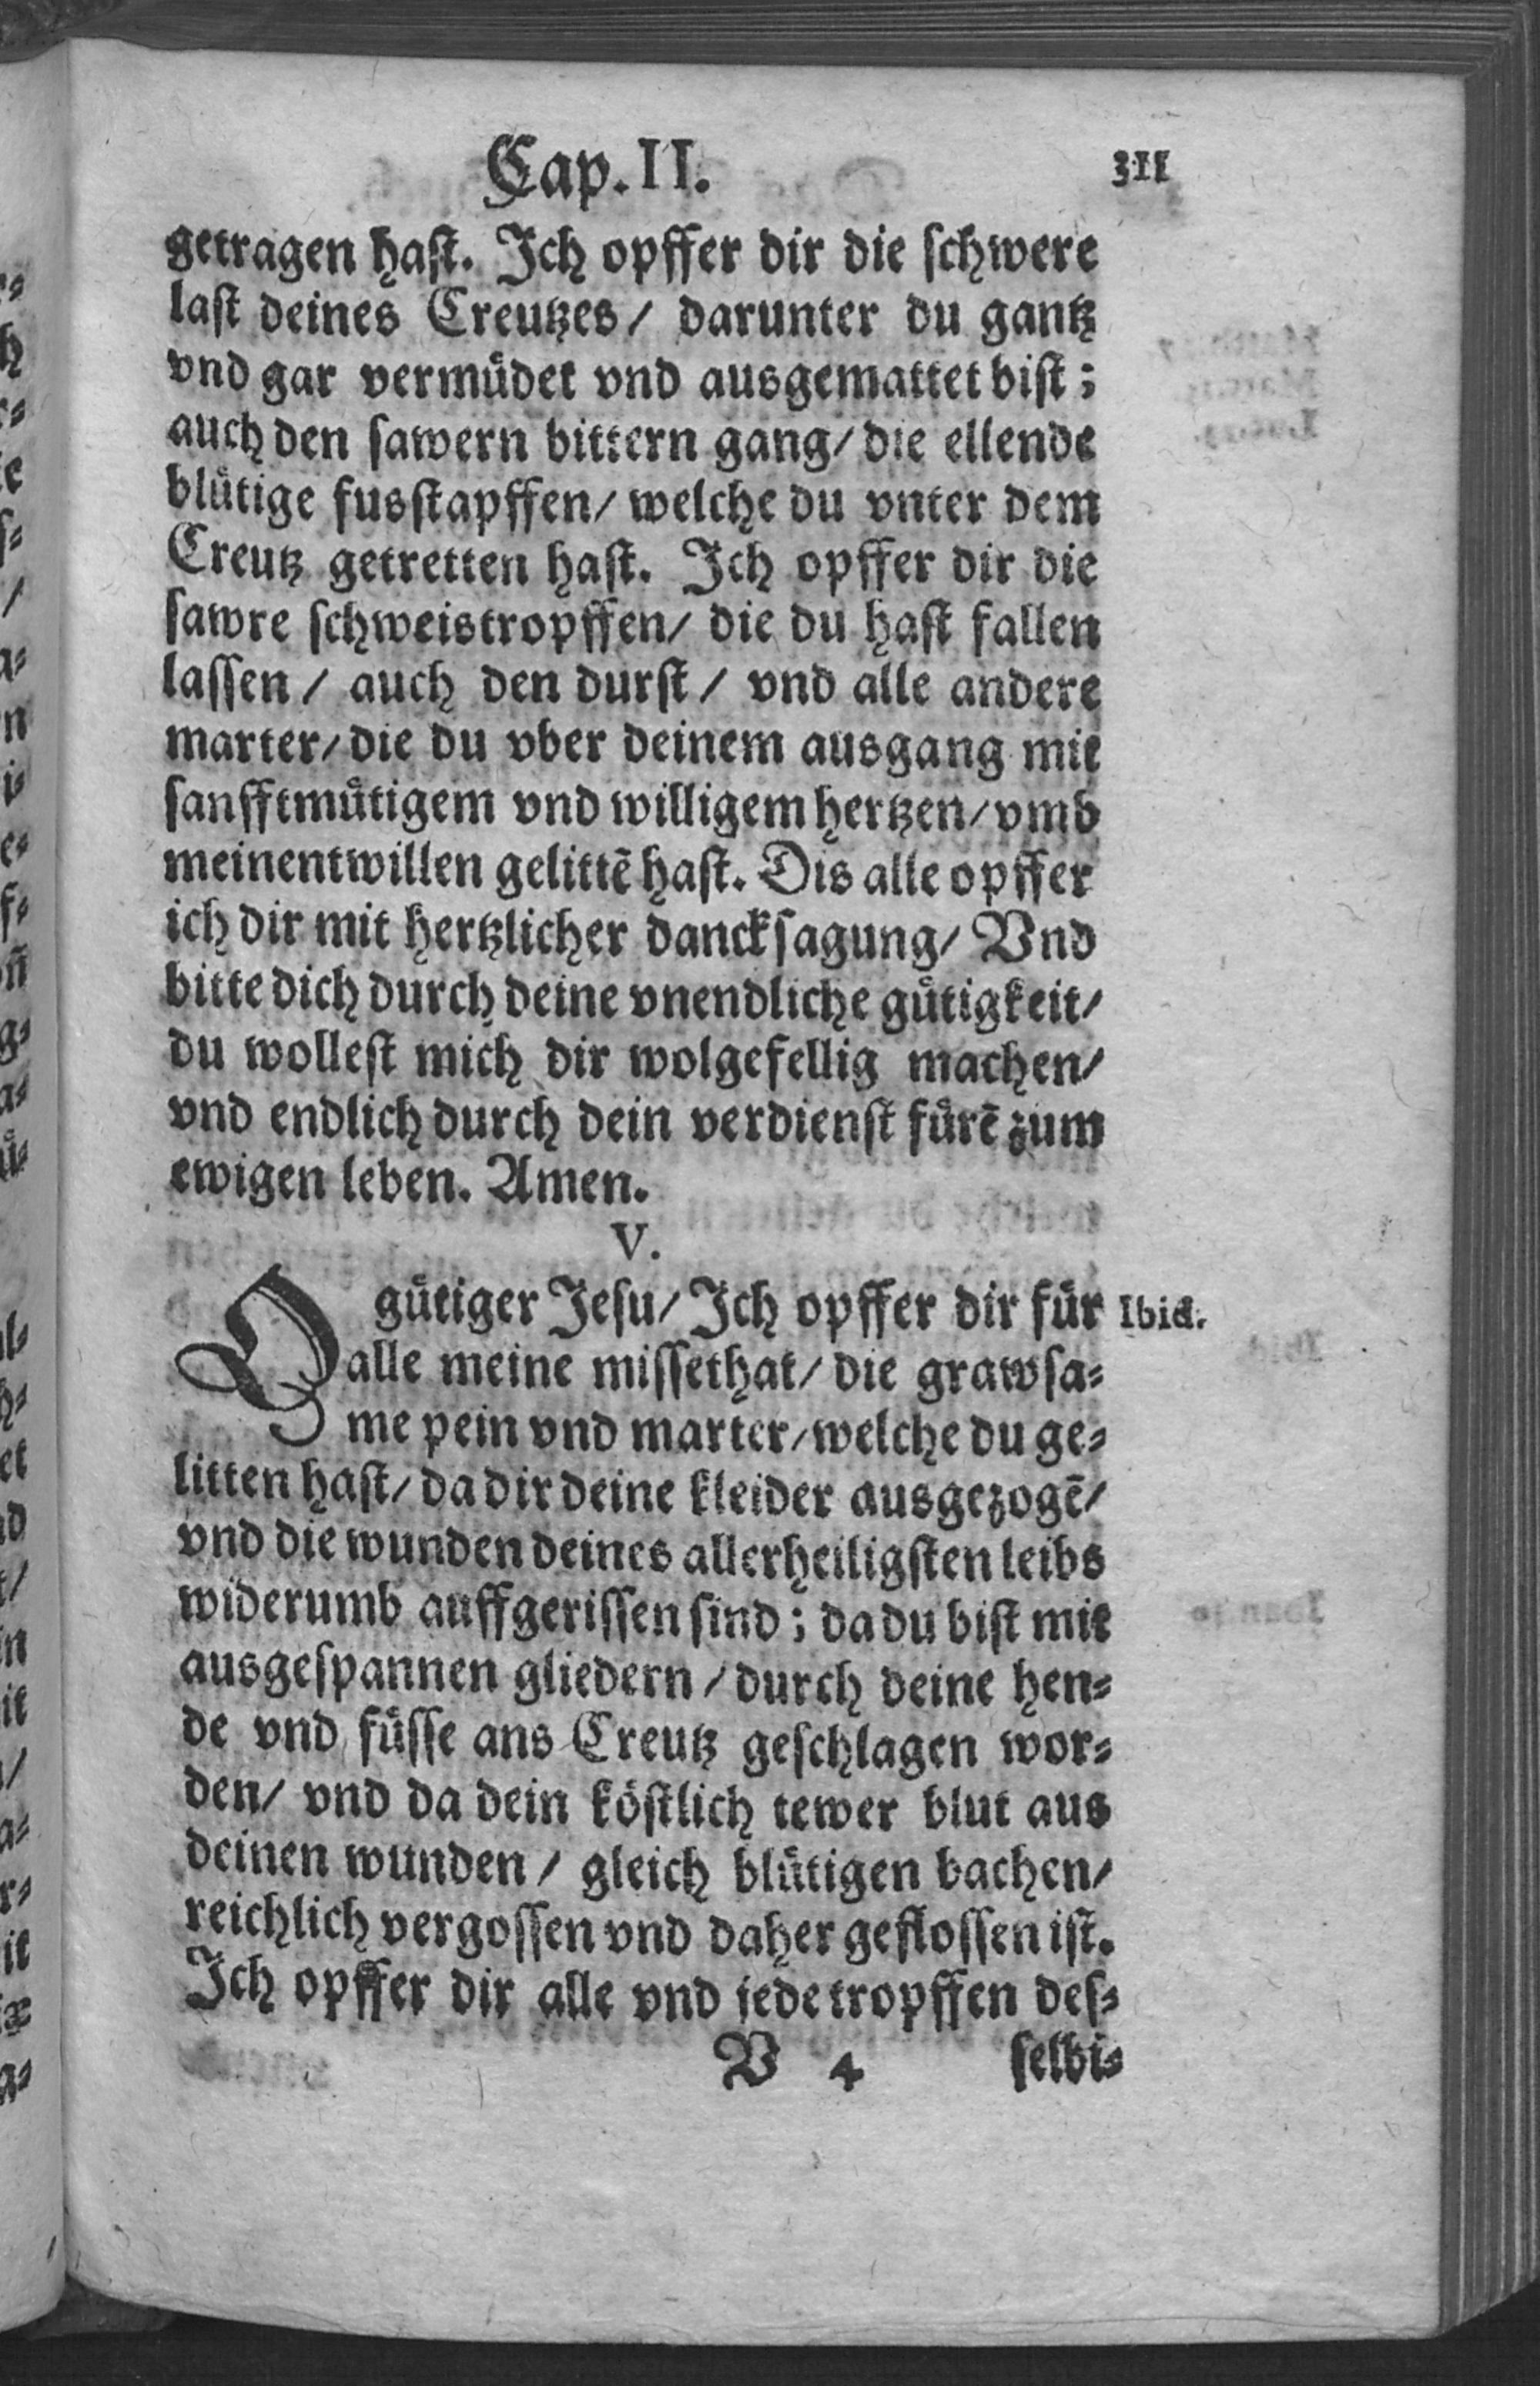 Cap. II. 311
getragen hast. Ich opffer dir die schwere
last deines Creutzes / darunter du gantz
vnd gar vermüdet vnd ausgemattet bist ;
auch den sawern bittern gang / die ellende
blütige fusstapffen / welche du vnter dem
Creutz getretten hast. Ich opffer dir die
sawre schweistropffen / die du hast fallen
lassen / auch den durst / vnd alle andere
marter / die du vber deinem ausgang mit
sanfftmütigem vnd willigem hertzen / vmb
meinentwillen gelittē hast. Dis alle opffer
ich dir mit hertzlicher dancksagung / Vnd
bitte dich durch deine vnendliche gütigkeit /
du wollest mich dir wolgefellig machen /
vnd endlich durch dein verdienst fürē zum
ewigen leben. Amen.
V.
O gütiger Jesu / Ich opffer dir für Ibid.
alle meine missethat / die grawsa-
me pein vnd marter / welche du ge-
litten hast / da dir deine kleider ausgezogē /
vnd die wunden deines allerheiligsten leibs
widerumb auffgerissen sind ; da du bist mit
ausgespannen gliedern / durch deine hen-
de vnd füsse ans Creutz geschlagen wor-
den / vnd da dein köstlich tewer blut aus
deinen wunden / gleich blütigen bachen /
reichlich vergossen vnd daher geflossen ist.
Ich opffer dir alle vnd jede tropffen des-
V 4 selbi-